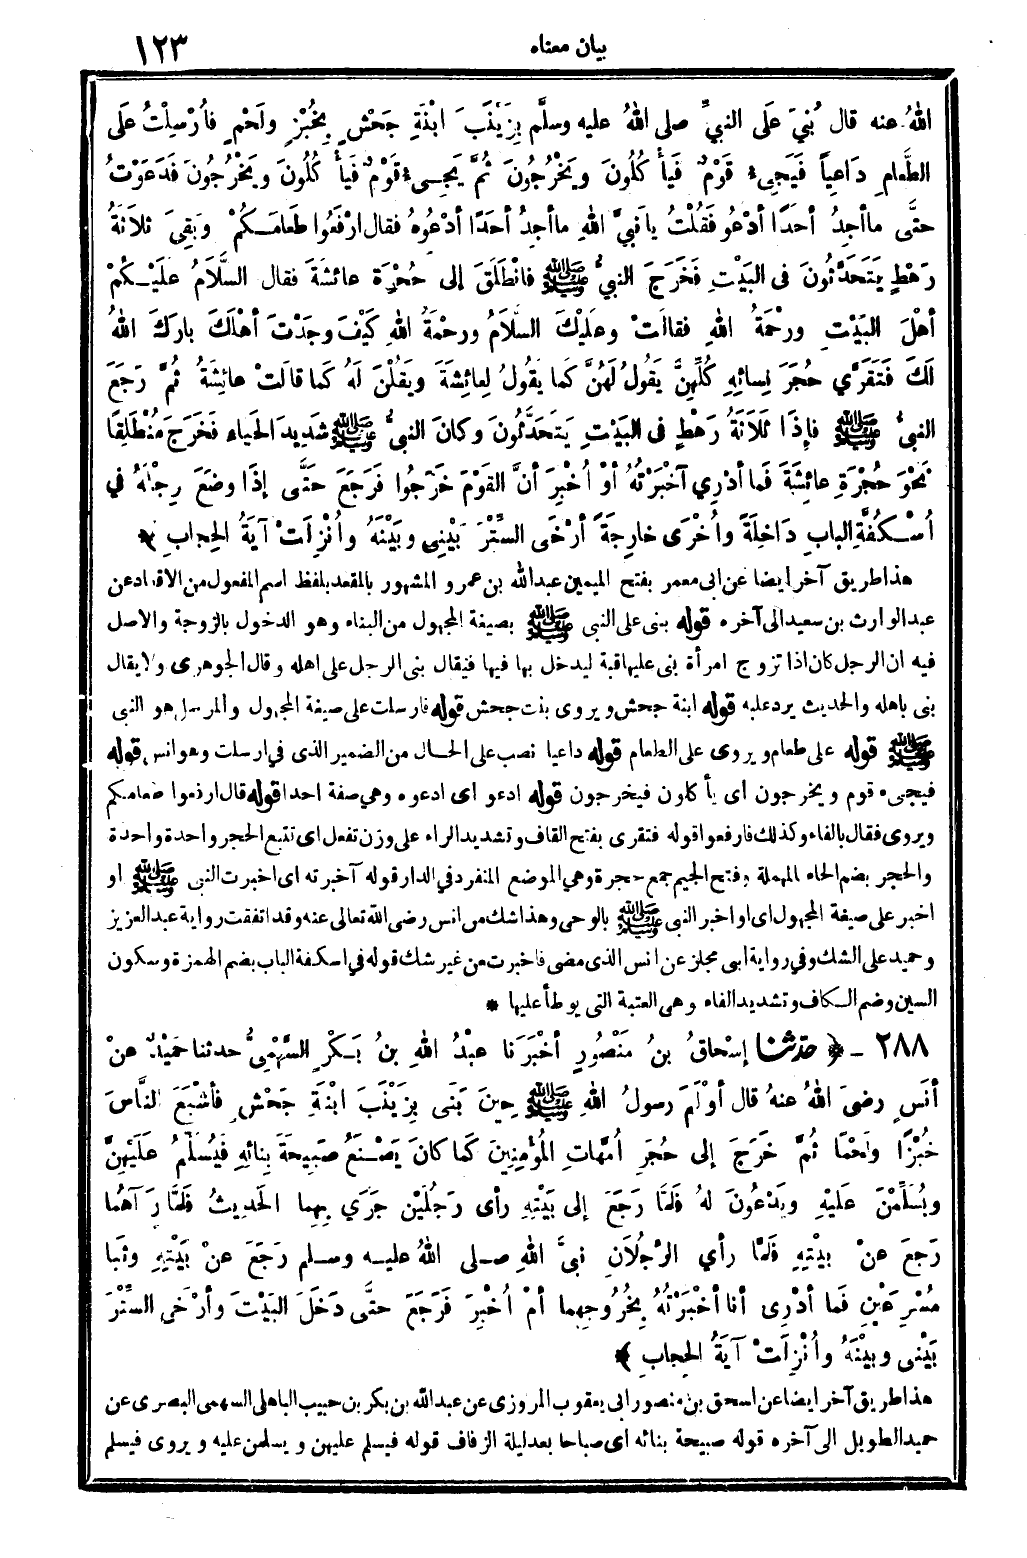 بيان معناه ١٢٣
اللهُ عنه قال بُنِيَ عَلَى النبيِّ صلى اللهُ عليه وسلَّم بِزَيْنَبَ ابْنَةِ جَحْشٍ بِخُبْزٍ ولَحْمٍ فأُرْسِلْتُ عَلَى
الطَّعامِ دَاعِياً فَيَجِيءُ قَوْمٌ فَيَأْكُلُونَ ويَخْرُجُونَ ثُمَّ يَجِيءُ قَوْمٌ فَيَأْكُلُونَ ويَخْرُجُونَ فَدَعَوْتُ
حتَّى ماأجِدُ أحَدًا أدْعُو فَقُلْتُ يانَبِيَّ اللهِ ماأجِدُ أحَدًا أدْعُوهُ فقال ارْفَعُوا طَعامَكُمْ وبَقِيَ ثَلاَثَةُ
رَهْطٍ يَتَحَدَّثُونَ فى البَيْتِ فَخَرَجَ النبيُّ ﷺ فانْطَلَقَ إلى حُجْرَةِ عائشَةَ فقال السَّلاَمُ علَيْكُمْ
أهْلَ البَيْتِ ورحْمَةُ اللهِ فقالَتْ وعَلَيْكَ السَّلاَمُ ورحْمَةُ اللهِ كَيْفَ وجَدْتَ أهْلَكَ بارَكَ اللهُ
لَكَ فَتَقَرَّي حُجَرَ نِسائِهِ كُلِّهِنَّ يَقُولُ لَهُنَّ كَما يقُولُ لِعائِشَةَ ويَقُلْنَ لَهُ كَما قالَتْ عائِشَةُ ثُمَّ رَجَعَ
النبيُّ ﷺ فإِذَا ثَلاَثَةُ رَهْطٍ فى البَيْتِ يَتَحَدَّثُونَ وكانَ النبيُّ ﷺ شَدِيدَ الحَياءِ فَخَرَجَ مُنْطَلِقًا
نَحْوَ حُجْرَةِ عائِشَةَ فَما أدْرِي آخْبَرْتُهُ أوْ أُخْبِرَ أنَّ القَوْمَ خَرَجُوا فَرَجَعَ حَتَّى إذَا وضَعَ رِجْلَهُ في
أُسْكُفَّةِ البابِ دَاخِلَةً وأُخْرَى خارِجَةً أرْخَى السِّتْرَ بَيْنِي وبَيْنَهُ وأُنْزِلَتْ آيَةُ الحِجابِ ﴾
هذا طريق آخر ايضا عن ابى معمر بفتح الميمين عبد الله بن عمرو المشهور بالمقعد بلفظ اسم المفعول من الاقعاد عن
عبد الوارث بن سعيد الى آخره قوله بنى على النبى ﷺ بصيغة المجهول من البناء وهو الدخول بالزوجة والاصل
فيه ان الرجل كان اذا تزوج امرأة بنى عليها قبة ليدخل بها فيها فيقال بنى الرجل على اهله وقال الجوهرى ولا يقال
بنى باهله والحديث يرد عليه قوله ابنة جحش ويروى بنت جحش قوله فارسلت على صيغة المجهول والمرسل هو النبى
ﷺ قوله على طعام ويروى على الطعام قوله داعيا نصب على الحال من الضمير الذى في ارسلت وهو انس قوله
فيجىء قوم ويخرجون اى يأكلون فيخرجون قوله ادعو اى ادعوه وهى صفة احدا قوله قال ارفعوا طعامكم
ويروى فقال بالفاء وكذلك فارفعوا قوله فتقرى بفتح القاف وتشديد الراء على وزن تفعل اى تتبع الحجر واحدة واحدة
والحجر بضم الحاء المهملة وفتح الجيم جمع حجرة وهي الموضع المنفرد في الدار قوله آخبرته اى اخبرت النبى ﷺ او
اخبر على صيغة المجهول اى او اخبر النبى ﷺ بالوحى وهذا شك من انس رضى الله تعالى عنه وقد اتفقت رواية عبد العزيز
وحميد على الشك وفي رواية ابى مجلز عن انس الذى مضى فاخبرت من غير شك قوله في اسكفة الباب بضم الهمزة وسكون
السين وضم الكاف وتشديد الفاء وهى العتبة التى يوطأ عليها *
٢٨٨ - ﴿ حدثنا إسْحاقُ بنُ مَنْصُورٍ أخْبَرَنا عبْدُ اللهِ بنُ بَكْرٍ السَّهْمِيُّ حدثنا حُمَيْدٌ عنْ
أنَسٍ رضىَ اللهُ عنهُ قال أوْلَمَ رسولُ اللهِ ﷺ حِينَ بَنَى بِزَيْنَبَ ابْنَةِ جَحْشٍ فأشْبَعَ النَّاسَ
خُبْزًا ولَحْمًا ثُمَّ خَرَجَ إلى حُجَرِ أُمَّهاتِ المُؤْمِنِينَ كَما كانَ يَصْنَعُ صَبِيحَةَ بِنائِهِ فَيُسَلِّمُ عَلَيْهِنَّ
ويُسَلِّمْنَ عَلَيْهِ ويَدْعُونَ لهُ فَلَمَّا رَجَعَ إلى بَيْتِهِ رأى رَجُلَيْنِ جَرَي بِهِما الحَديثُ فَلَمَّا رَآهُما
رَجعَ عنْ بيْتِهِ فَلَمَّا رأي الرَّجُلاَنِ نبيَّ اللهِ صلى اللهُ عليه وسلم رَجَعَ عنْ بَيْتِهِ وثَبا
مُسْرِعَيْنِ فَما أدْرِى أنا أخْبَرْتُهُ بِخُرُوجِهِما أمْ أُخْبِرَ فَرَجَعَ حتَّى دَخَلَ البَيْتَ وأرْخَى السِّتْرَ
بَيْنِى وبيْنَهُ وأُنْزِلَتْ آيَةُ الحِجابِ ﴾
هذا طريق آخر ايضا عن اسحق بن منصور ابى يعقوب المروزى عن عبد الله بن بكر بن حبيب الباهلى السهمى البصرى عن
حميد الطويل الى آخره قوله صبيحة بنائه اى صباحا بعد ليلة الزفاف قوله فيسلم عليهن ويسلمن عليه ويروى فيسلم